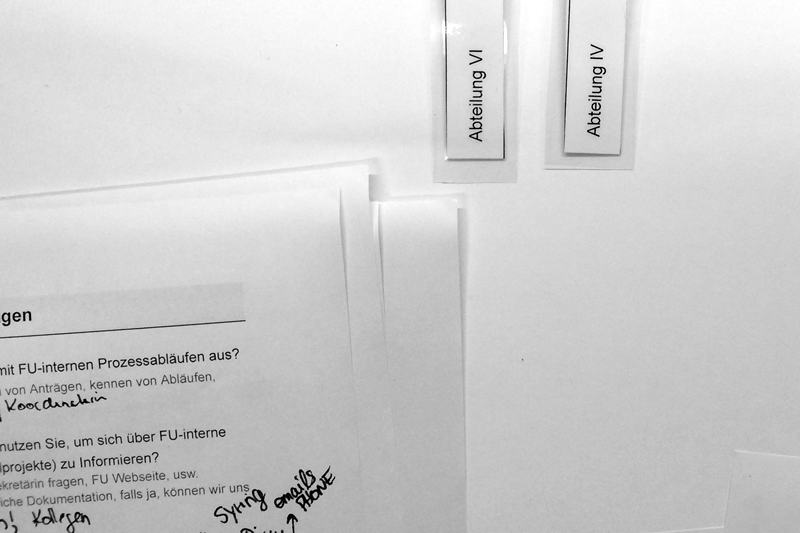 Abteilung VI
Abteilung IV
gen
mit FU-internen Prozessabläufen aus?
von Anträgen, kennen von Abläufen,
Koordinatorin
nutzen Sie, um sich über FU-interne
lprojekte) zu Informieren?
ekretärin fragen, FU Webseite, usw.
iche Dokumentation, falls ja, können wir uns
Kollegen
emails
PHONE